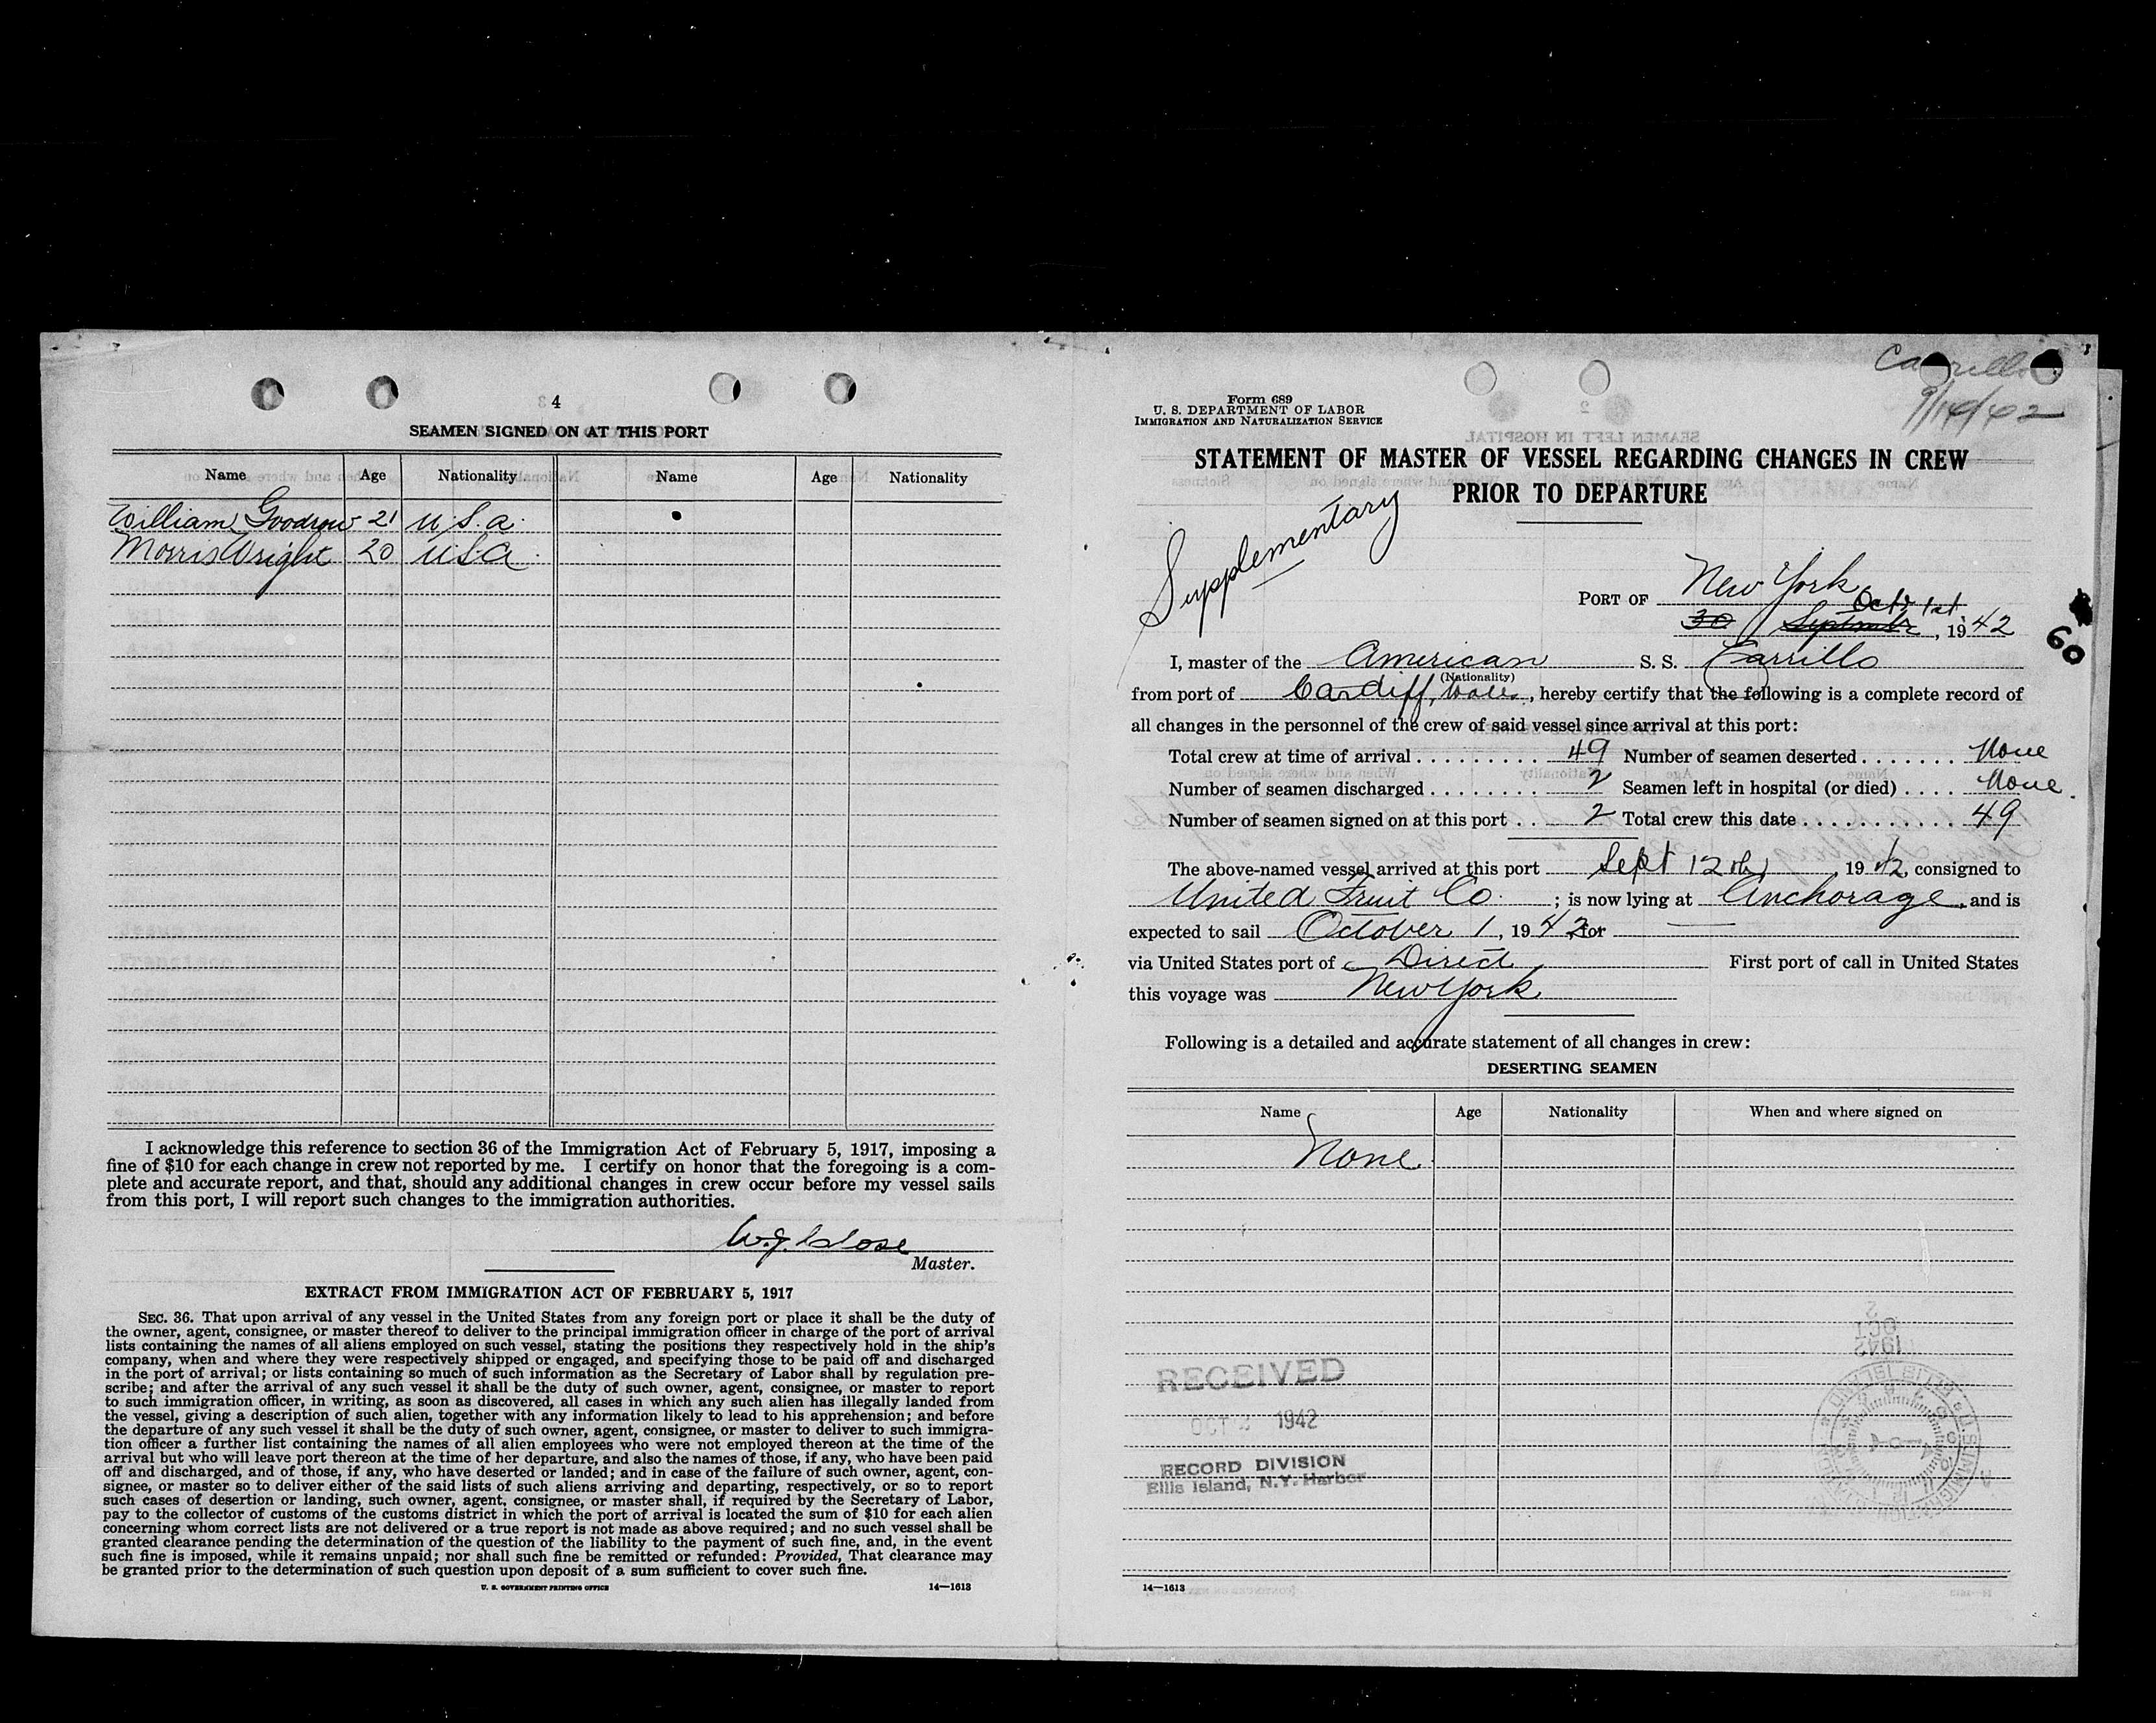 4
SEAMEN SIGNED ON AT THIS PORT
Name Age Nationality Name Age Nationality
William Goodrow 21 U.S.A.
Morris Wright 20 USA
I acknowledge this reference to section 36 of the Immigration Act of February 5, 1917, imposing a
fine of $10 for each change in crew not reported by me. I certify on honor that the foregoing is a com-
plete and accurate report, and that, should any additional changes in crew occur before my vessel sails
from this port, I will report such changes to the immigration authorities.
W.J. Close
Master.
EXTRACT FROM IMMIGRATION ACT OF FEBRUARY 5, 1917
SEC. 36. That upon arrival of any vessel in the United States from any foreign port or place it shall be the duty of
the owner, agent, consignee, or master thereof to deliver to the principal immigration officer in charge of the port of arrival
lists containing the names of all aliens employed on such vessel, stating the positions they respectively hold in the ship's
company, when and where they were respectively shipped or engaged, and specifying those to be paid off and discharged
in the port of arrival; or lists containing so much of such information as the Secretary of Labor shall by regulation pre-
scribe; and after the arrival of any such vessel it shall be the duty of such owner, agent, consignee, or master to report
to such immigration officer, in writing, as soon as discovered, all cases in which any such alien has illegally landed from
the vessel, giving a description of such alien, together with any information likely to lead to his apprehension; and before
the departure of any such vessel it shall be the duty of such owner, agent, consignee, or master to deliver to such immigra-
tion officer a further list containing the names of all alien employees who were not employed thereon at the time of the
arrival but who will leave port thereon at the time of her departure, and also the names of those, if any, who have been paid
off and discharged, and of those, if any, who have deserted or landed; and in case of the failure of such owner, agent, con-
signee, or master so to deliver either of the said lists of such aliens arriving and departing, respectively, or so to report
such cases of desertion or landing, such owner, agent, consignee, or master shall, if required by the Secretary of Labor,
pay to the collector of customs of the customs district in which the port of arrival is located the sum of $10 for each alien
concerning whom correct lists are not delivered or a true report is not made as above required; and no such vessel shall be
granted clearance pending the determination of the question of the liability to the payment of such fine, and, in the event
such fine is imposed, while it remains unpaid; nor shall such fine be remitted or refunded: Provided, That clearance may
be granted prior to the determination of such question upon deposit of a sum sufficient to cover such fine.
U. S. GOVERNMENT PRINTING OFFICE 14—1613
Carrillo
9/14/42
Form 689
U. S. DEPARTMENT OF LABOR
IMMIGRATION AND NATURALIZATION SERVICE
STATEMENT OF MASTER OF VESSEL REGARDING CHANGES IN CREW
PRIOR TO DEPARTURE
Supplementary
PORT OF New York
Oct 1st
30 September, 1942
60
I, master of the American S. S. Carrillo
(Nationality)
from port of Cardiff, Wales, hereby certify that the following is a complete record of
all changes in the personnel of the crew of said vessel since arrival at this port:
Total crew at time of arrival . . . . . . . . . 49 Number of seamen deserted . . . . . . . None
Number of seamen discharged . . . . . . . . 2 Seamen left in hospital (or died) . . . . None.
Number of seamen signed on at this port . . 2 Total crew this date . . . . . . . . . . . 49
The above-named vessel arrived at this port Sept 12th, 1942, consigned to
United Fruit Co. ; is now lying at Anchorage, and is
expected to sail October 1, 1942, for —
via United States port of Direct First port of call in United States
this voyage was New York
Following is a detailed and accurate statement of all changes in crew:
DESERTING SEAMEN
Name Age Nationality When and where signed on
None
RECEIVED
OCT 1942
RECORD DIVISION
Ellis Island, N.Y. Harbor
14—1613